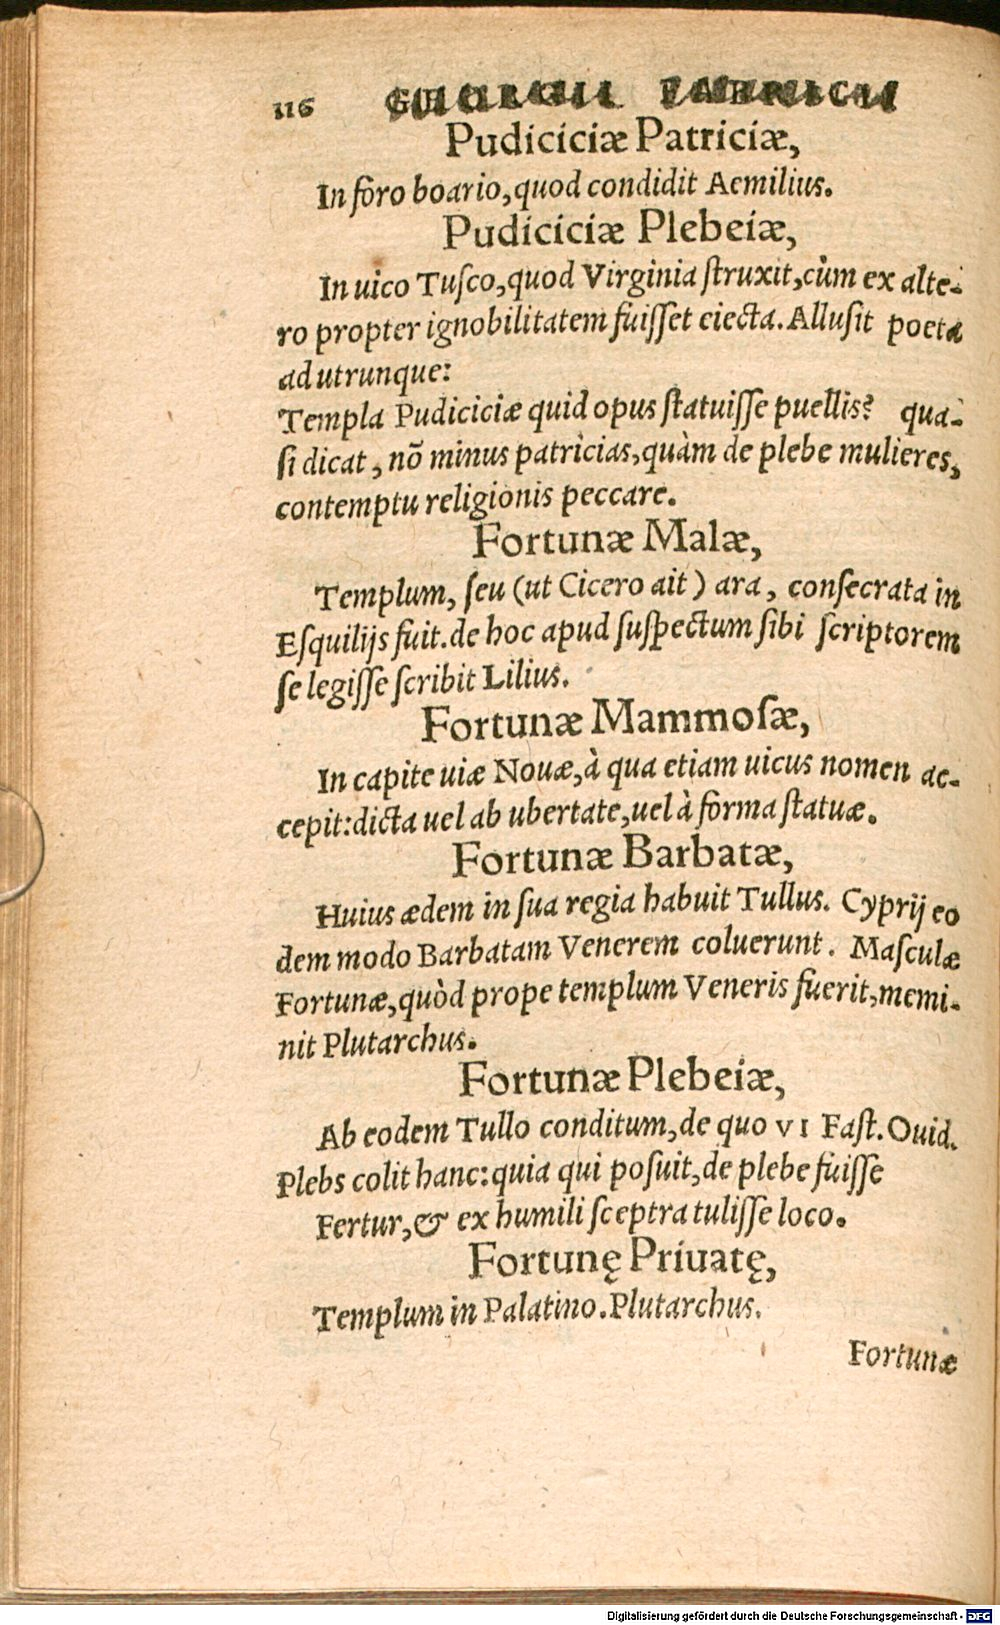 116 GEORGII FABRICII
Pudiciciæ Patriciæ,
In foro boario, quod condidit Aemilius.
Pudiciciæ Plebeiæ,
In uico Tuſco, quod Virginia ſtruxit, cùm ex alte-
ro propter ignobilitatem fuiſſet eiecta. Alluſit poeta
ad utrunque:
Templa Pudiciciæ quid opus ſtatuiſſe puellis? qua-
ſi dicat, nõ minus patricias, quàm de plebe mulieres,
contemptu religionis peccare.
Fortunæ Malæ,
Templum, ſeu (ut Cicero ait) ara, conſecrata in
Eſquilijs fuit. de hoc apud ſuſpectum ſibi ſcriptorem
ſe legiſſe ſcribit Lilius.
Fortunæ Mammoſæ,
In capite uiæ Nouæ, à qua etiam uicus nomen ac-
cepit: dicta uel ab ubertate, uel à forma ſtatuæ.
Fortunæ Barbatæ,
Huius ædem in ſua regia habuit Tullus. Cyprij eo
dem modo Barbatam Venerem coluerunt. Maſculæ
Fortunæ, quòd prope templum Veneris fuerit, memi-
nit Plutarchus.
Fortunæ Plebeiæ,
Ab eodem Tullo conditum, de quo VI Faſt. Ouid.
Plebs colit hanc: quia qui poſuit, de plebe fuiſſe
Fertur, & ex humili ſceptra tuliſſe loco.
Fortunę Priuatę,
Templum in Palatino. Plutarchus.
Fortunæ
Digitalisierung gefördert durch die Deutsche Forschungsgemeinschaft - DFG